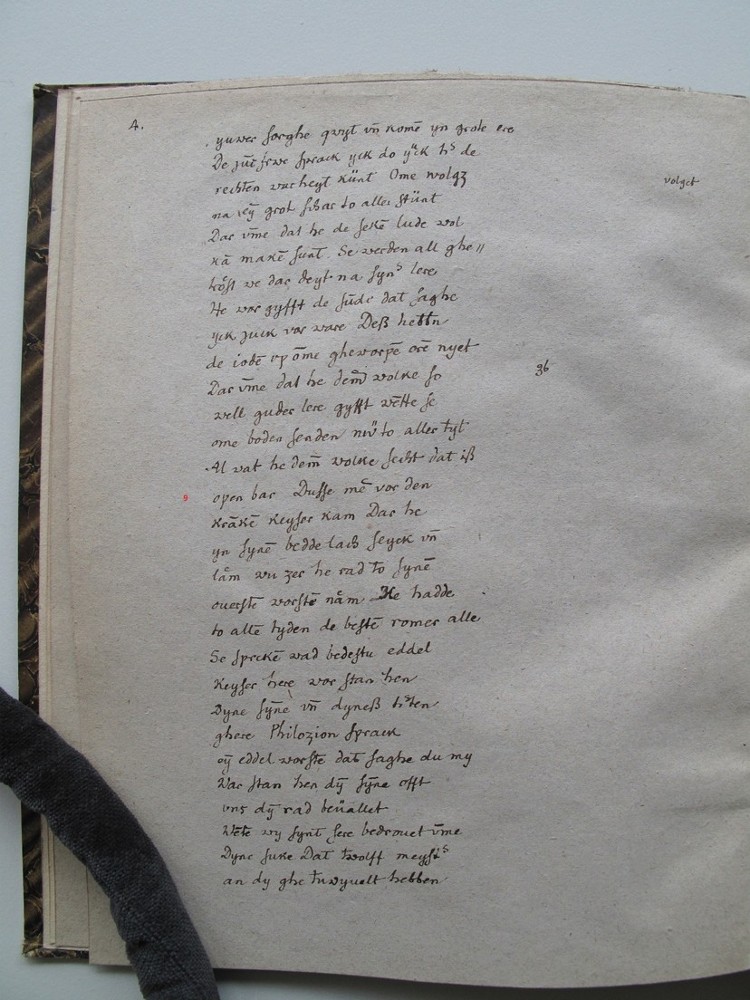 4.
yuwer sorghe qwyt vn̄ nomē yn grote ere
De sprack yck do
rechten warheyt künt Ome wolgz
volget
na grot schar to aller stünt
Dar vm̄e dat he de sekē lude wol
kā makē sunt. Se werden all ghe〃
we dar deyt na syns lere
He vor gyfft de sūde dat saghe
yck juck vor ware Deß hebbn
de iodē vp ōme gheworpē orē nyet
36
Dar vm̄e dat he dem̄ volke so
vell guder lere gyfft wētte se
ome boden senden nw̄ to aller tyt
Al wat he dem̄ volke secht dat iß
9
open bar Dusse mē vor den
krākē keyser kam Dar he
yn synē bedde lach seyck vn̄
lām he rad to synē
ouerstē vorstē nām He hadde
to allē tyden de bestē romer alle
Se sprekē wad bedestu eddel
keyser here vor stan hen
Dyne syne vn̄ dyneß
ghere Philozion sprack
oy eddel vorste dat saghe du my
War stan hen dy syne offt
vns dy rad beuallet
Wēte wy synt sere bedrouet vm̄e
Dyne suke Dat twolff
an dy ghe twyuelt hebben